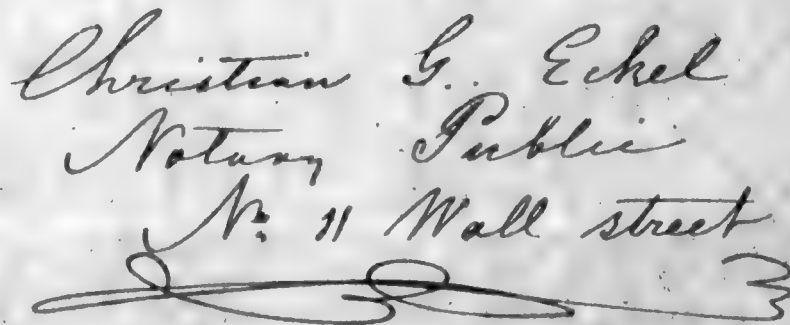 Christian G. Eckel
Notary Public
No: 11 Wall street